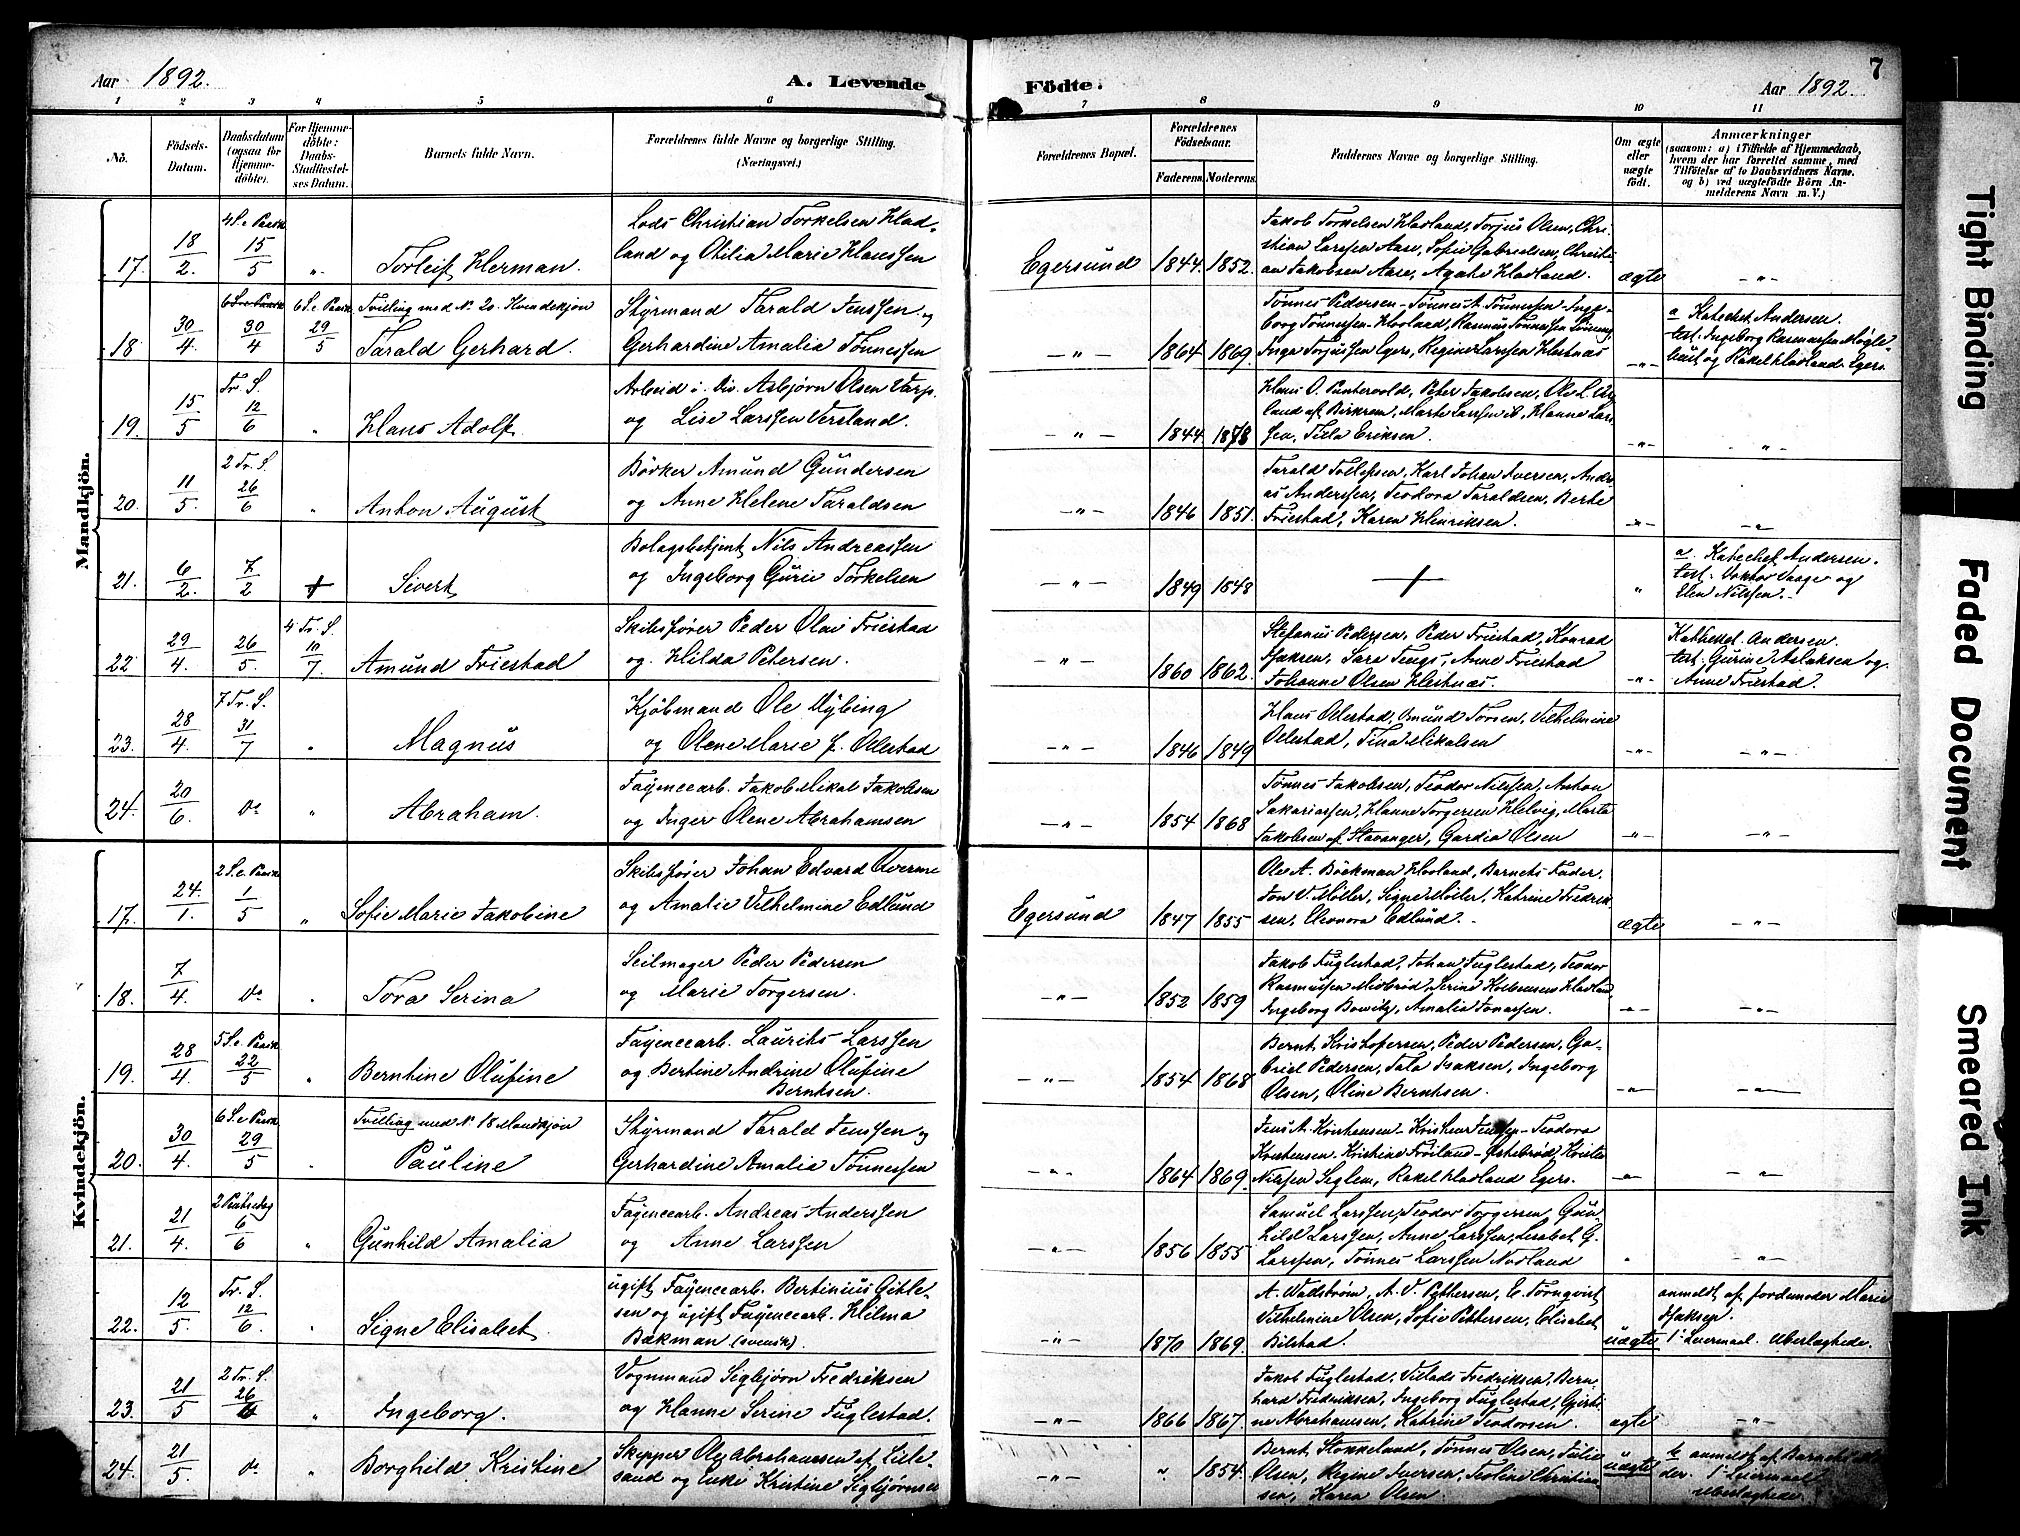 Aar 1892.
A. Levende
Födte.
7
Aar 1892.
1 2 3 4 5 6 7 8 9 10 11
No.
Födsels-
Datum.
Daabsdatum
(ogsaa for
Hjemme-
döbte).
For Hjemme-
döbte:
Daabs-
Stadfæstel-
ses Datum.
Barnets fulde Navn.
Forældrenes fulde Navne og borgerlige Stilling.
(Næringsvei.)
Forældrenes Bopæl.
Forældrenes
Födselsaar.
Faderens. Moderens.
Faddernes Navne og borgerlige Stilling.
Om ægte
eller
uægte
födt.
Anmærkninger
(saasom: a) i Tilfælde af Hjemmedaab,
hvem der har forrettet samme, med
Tilföielse af to Daabsvidners Navne.
og b) ved uægtefödte Börn An-
melderens Navn m. V.)
Mandkjön.
17. 18/2. 4 S. e. Paask 15/5 „ Torleif Herman.
Lods Christian Torkelsen Hlad-
land og Otilia Marie Hanssen
Egersund 1844. 1852.
Jakob Torkelsen Hladland, Torjus Olsen, Chri-
stian Larssen Aase, Sofie Gabrielsen, Christi-
an Jakobsen Aase, Agate Hladland.
ægte —„—
18 30/4. 30/4 6 S. e. Paask 29/5 Tvilling med No 20. Kvindekjön
Tarald Gerhard.
Styrmand Tarald Jenssen og
Gerhardine Amalia Tönnessen
—„— 1864 1869.
Tönnes Pedersen - Tönnes A. Tönnessen - Inge-
borg Tönnessen - Hovland, Rasmus Tönnessen
Inga Torjussen Egers, Regine Larssen Hestnæs
—„—
a Katechet Andersen.
test. Ingeborg Rasmussen Mögle-
hus og Rakel Hladland. Egers.
19. 15/5 Tr. S. 12/6 „ Hans Adolf.
Arbeid i. Div. Asbjörn Olsen
og Lise Larssen Versland.
—„— 1844 1878
Hans O. Puntervold, Peter Jakobsen, Ole L.
land af Birkrem, Marte Larssen ib, Hanne Lar-
sen, Tilla Eriksen.
—„— „
20. 11/5. 2 Tr. S. 26/6 „ Anton August
Bödker Amund Gundersen
og Anne Helene Taraldsen
—„— 1846 1851.
Tarald Tollefsen, Karl Johan Iversen, Andr-
as Anderssen, Teodora Taraldsen, Berte
Friestad, Karen Henriksen.
—„— —„—
21. 6/2. 7/2 + Sivert
Bolagsbetjent Nils Andreassen
og Ingeborg Gurie Torkelsen
—„— 1849 1848 + „
a. Katechet Andersen.
test. Doktor Vaage og
Elen Nilssen.
22 29/4. 26/5. 4 Tr. S. 10/7. Amund Friestad
Skibsförer Peder Olai Friestad
og Hilda Petersen.
—„— 1860 1862.
Stefanus Pedersen, Peder Friestad, Konrad
Isaksen, Sara Tengs, Anne Friestad
Johanne Olsen Hestnæs.
—„—
Katechet. Andersen.
test. Gurine Aslaksen og
Anne Friestad.
23. 28/4 7 Tr. S. 31/7 „ Magnus
Kjöbmand Ole Dybing
og Olene Marie f. Ollestad
—„— 1846 1849
Hans Ollestad, Omund Torsen, Vilhelmine
Ollestad, Tina Mikalsen
—„— —„—
24. 20/6. do „ Abraham.
Fayencearb. Jakob Mikal Jakobsen
og Inger Olene Abrahamsen
—„— 1854 1868
Tönnes Jakobsen, Teodor Nilssen, Anton
Sakariassen, Hanne Torgersen Helvig, Marta
Jakobsen af Stavanger, Gardia Olsen
—„— —„—
Kvindekjön.
17. 24/1. 2 S. e. Paask 1/5 „ Sofie Marie Jakobine
Skibsförer Johan Edvard Qverme
og Amalie Vilhelmine Edlund
Egersund 1847 1855
Ole A. Böckman Hovland, Barnets Fader,
Jon V. Möller, Signe Möller, Katrine Fredrik-
sen, Eleonora Edlund.
ægte —„—
18. 7/4. do „ Tora Serina
Seilmager Peder Pedersen
og Marie Torgersen.
—„— 1852 1859
Jakob Fuglestad, Johan Fuglestad, Teodor
Rasmussen Midbröd, Serine Hladland
Ingeborg Bowitz, Amalia Jonassen.
—„— —„—
19. 28/4 5 S. e. Paask 22/5 „ Berntine Olufine
Fayencearb. Laurits Larssen
og Bertine Andrine Olufine
Berntsen.
—„— 1854 1868
Bernt Kristofersen, Peder Pedersen, Ga-
briel Pedersen, Tala Isaksen, Ingeborg
Olsen, Oline Berntsen.
—„— —„—
20. 30/4. 6 S. e. Paask 29/5 „ Tvilling med No 18 Mandkjön
Pauline
Styrmand Tarald Jenssen og
Gerhardine Amalia Tönnessen
—„— 1864 1869.
Jens A. Kristensen - Kristen Jenssen - Teodora
Kristensen, Kristine Fröiland - Ystebröd, Kristin
Nilssen Seglem, Rakel Hladland Egers.
—„— —„—
21. 21/4. 2 Pintsedag 6/6 „ Gunhild Amalia
Fayencearb. Andreas Anderssen
og Anne Larssen
—„— 1856 1855
Samuel Larssen, Teodor Torgersen, Gun-
hild Larssen, Anne Larssen, Lisabet G.
Larssen, Tönnes Larssen Nodland
„ „
22. 12/5. Tr. S. 12/6. „ Signe Elisabet.
ugift Fayencearb. Bertinius Gitle-
sen og ugift Fayencearb. Hilma
Bækman (svensk).
—„— 1870 1869.
A. Wadström, A. V. Pettersen, E. Törnqvist
Vilhelmine Olsen, Sofie Pettersen, Elisabet
Bilstad.
uægte
anmeldt af Jordemoder Marie
Isaksen.
1' Leiermaal. Uberlagtede.
23. 21/5 2 Tr. S. 26/6 „ Ingeborg.
Vognmand Segbjörn Fredriksen
og Hanne Serine Fuglestad.
—„— 1866 1867.
Jakob Fuglestad, Villads Fredriksen, Bern-
hard Fredriksen, Ingeborg Fuglestad, Gjerti-
ne Abrahamsen, Katrine Teodorsen.
ægte —„—
24. 21/5. do „ Borghild Kristine
Skipper Ole Abrahamsen af Lille-
sand og Enke Kristine Segbjörnsen
—„— „ 1854.
Bernt Stokkeland, Tönnes Olsen, Julie
Olsen, Regine Iversen, Teoline Christian-
sen, Karen Olsen.
uægte
b anmeldt af Barnets
der. 1' Leiermaal
Uberlagtede.
Tight Binding
Faded Document
Smeared Ink